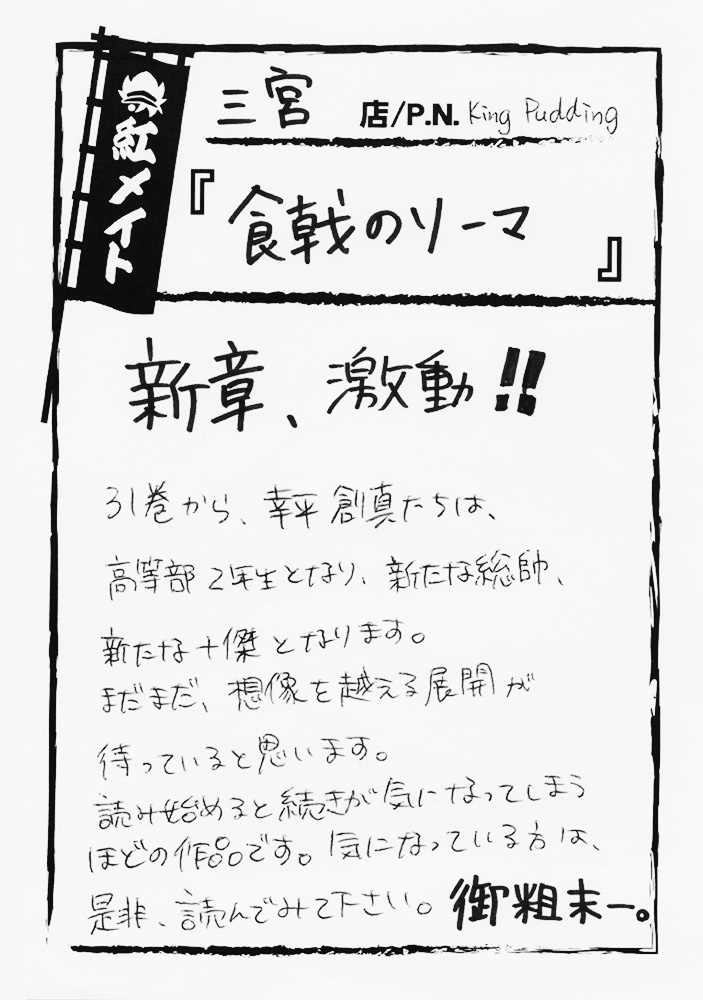 紅メイト
三宮 店/P.N. King Pudding
『食戟のソーマ』
新章、激動!!
31巻から、幸平創真たちは、
高等部2年生となり、新たな総帥、
新たな十傑となります。
まだまだ、想像を越える展開が
待っていると思います。
読み始めると続きが気になってしまう
ほどの作品です。気になっている方は、
是非、読んでみて下さい。御粗末ー。